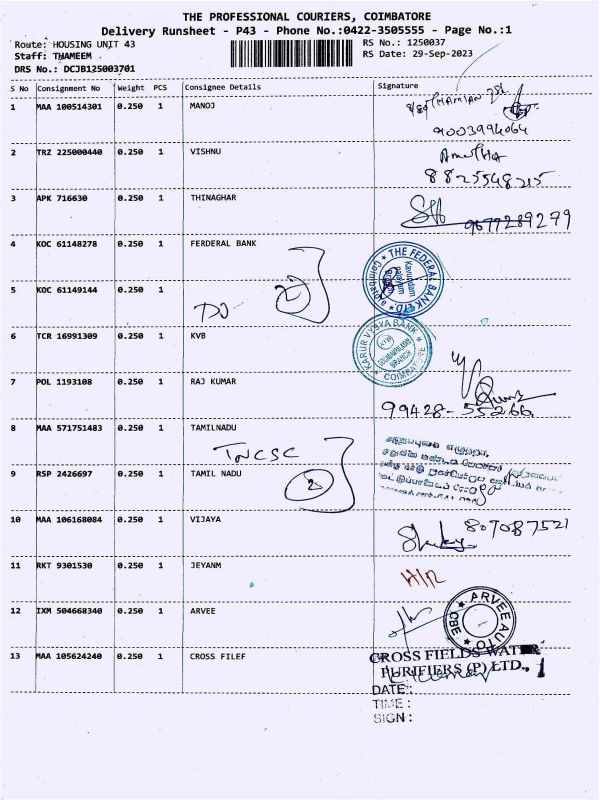 THE PROFESSIONAL COURIERS, COIMBATORE
Delivery Runsheet - P43 - Phone No.:0422-3505555 - Page No.:1
Route: HOUSING UNIT 43
RS No.: 1250037
Staff: THAMEEM
RS Date: 29-Sep-2023
DRS No.: DCJB125003701
S No Consignment No Weight PCS Consignee Details Signature
1 MAA 100514301 0.250 1 MANOJ
9003994064
2 TRZ 225000440 0.250 1 VISHNU
8825548215
3 APK 716630 0.250 1 THINAGHAR
9677289279
4 KOC 61148278 0.250 1 FERDERAL BANK
THE FEDERAL BANK LTD.
Coimbatore
5 KOC 61149144 0.250 1
2
6 TCR 16991309 0.250 1 KVB
KARUR VYSYA BANK
BRANCH
COIMBATORE
7 POL 1193108 0.250 1 RAJ KUMAR
99428-55266
8 MAA 571751483 0.250 1 TAMILNADU
TNCSC
9 RSP 2426697 0.250 1 TAMIL NADU
2
10 MAA 106168084 0.250 1 VIJAYA
807087521
11 RKT 9301530 0.250 1 JEYANM
12 IXM 504668340 0.250 1 ARVEE
ARVEE AUTO
CBE
13 MAA 105624240 0.250 1 CROSS FILEF
CROSS FIELDS WATER
PURIFIERS (P) LTD.,
DATE:
TIME:
SIGN: